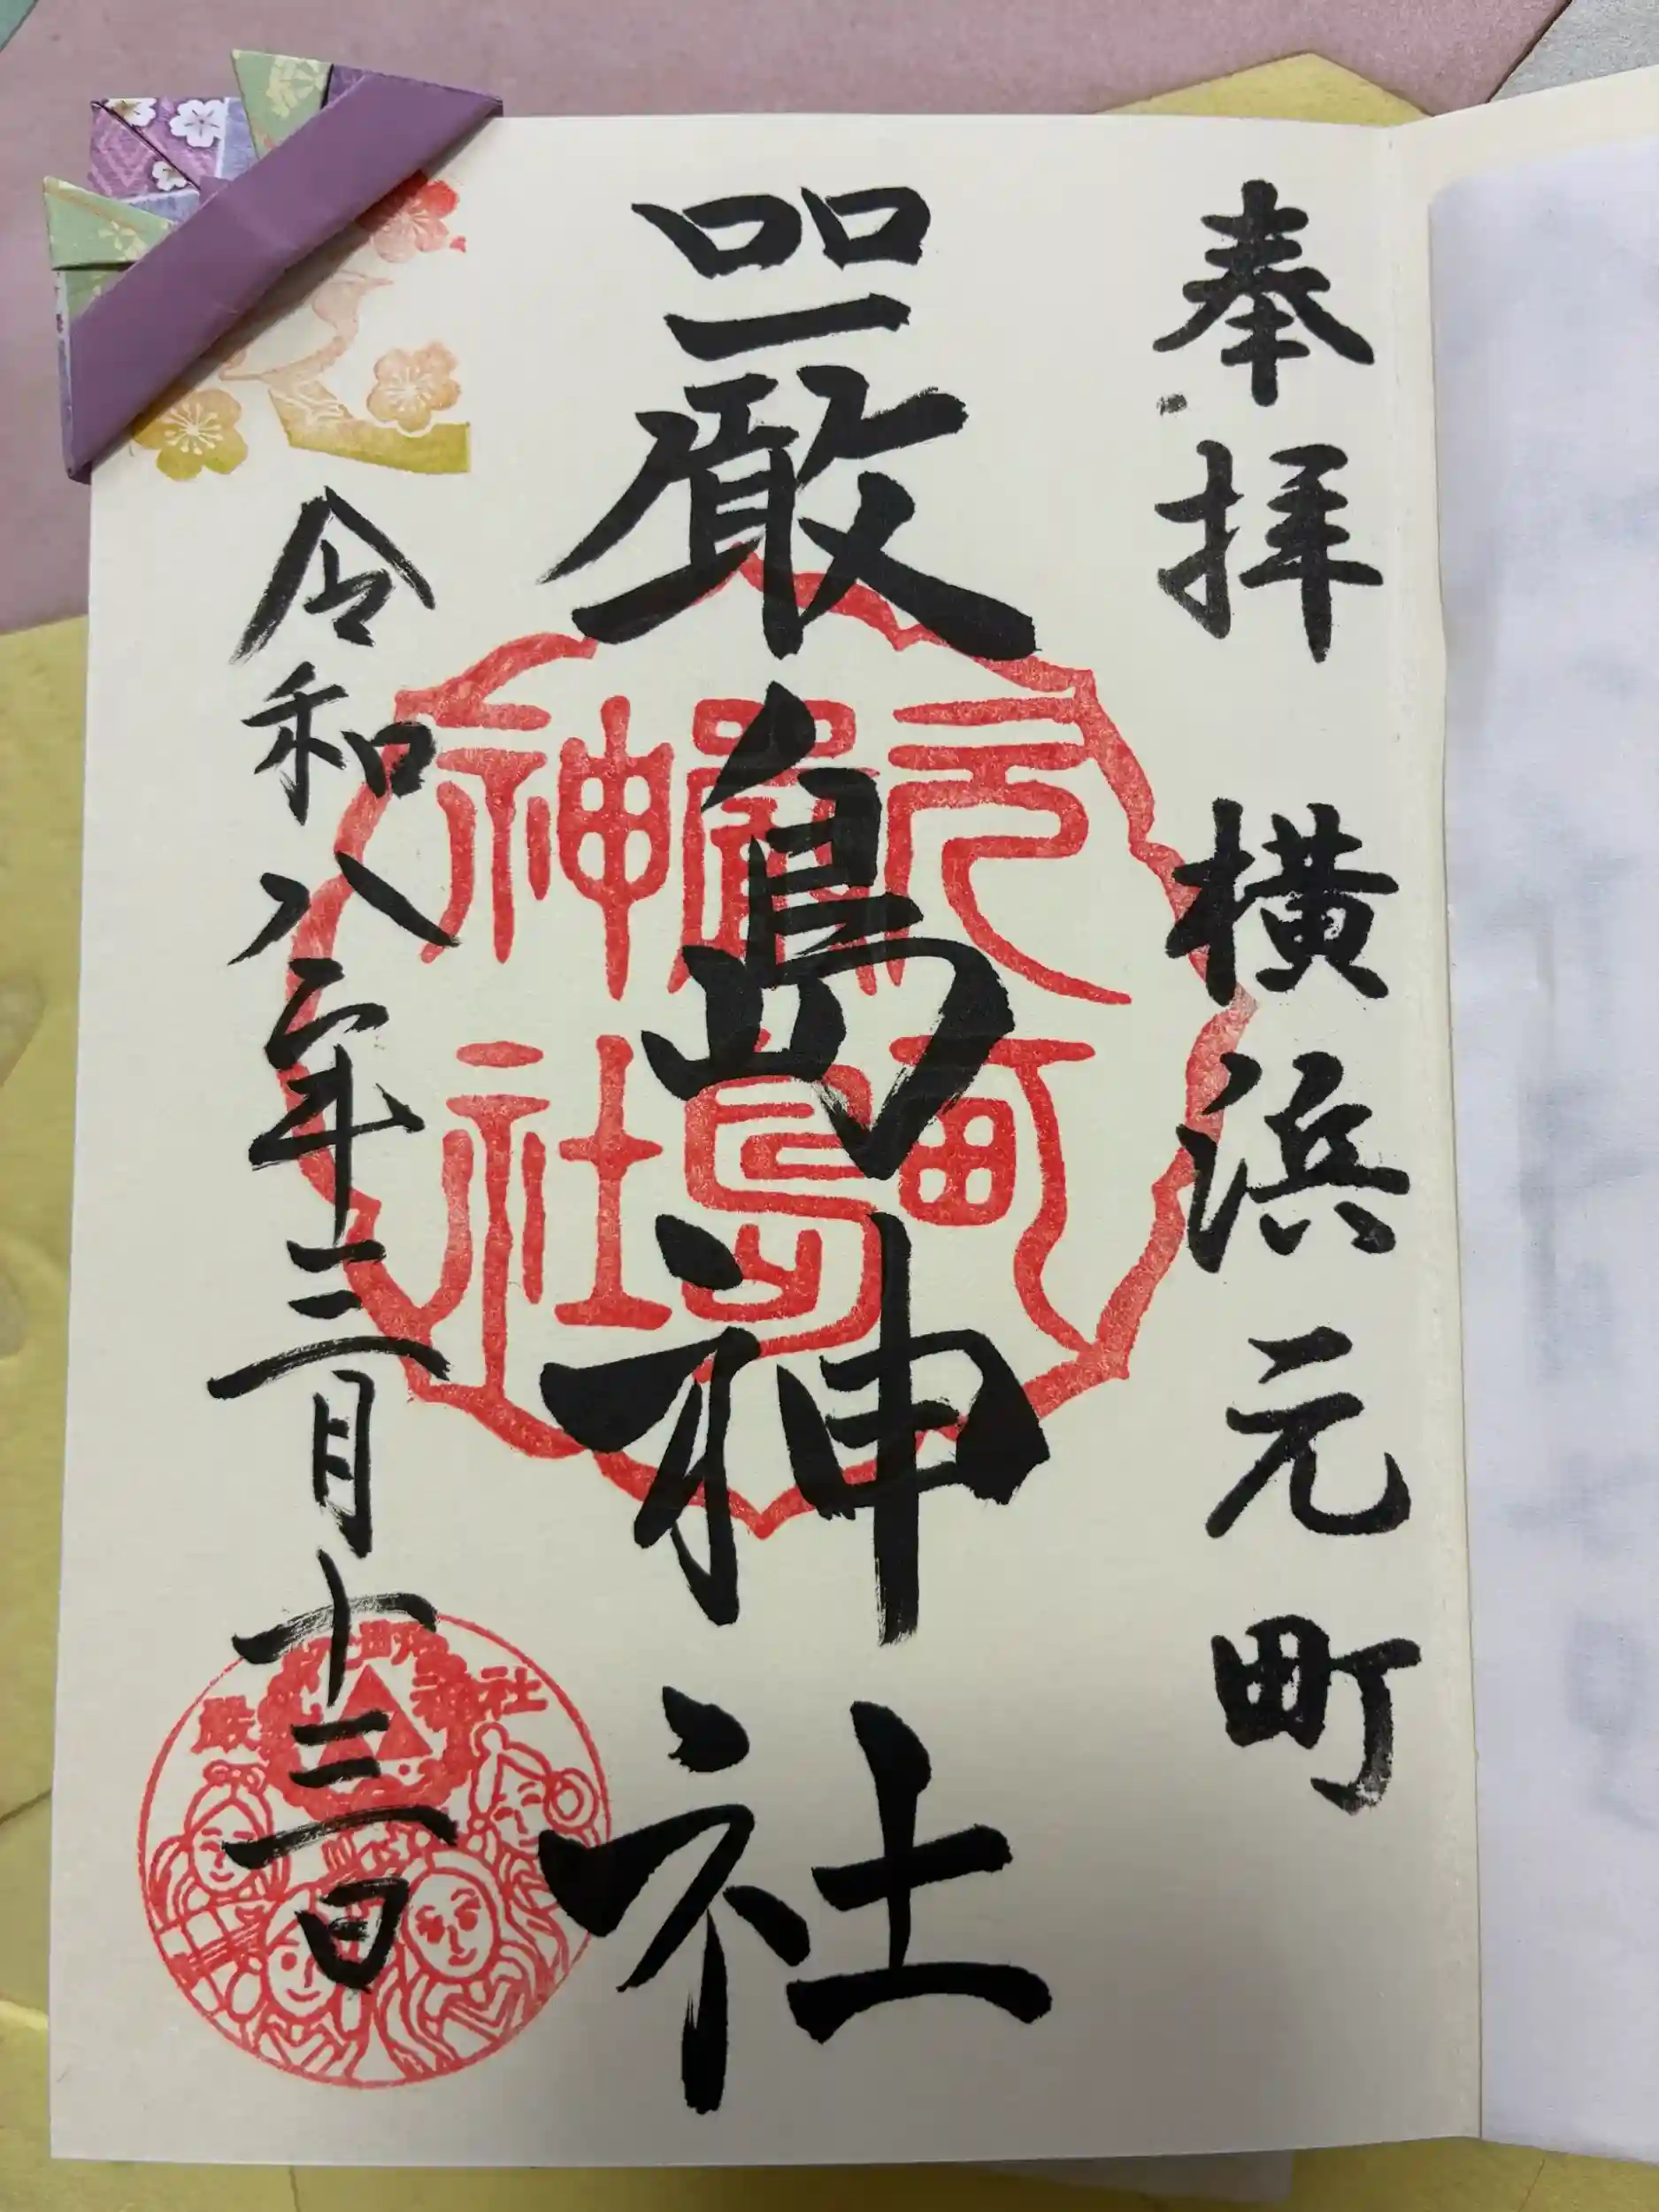 奉拝 横浜元町
嚴島神社
元町
嚴島
神社
令和八年三月十三日
元町
嚴島神社